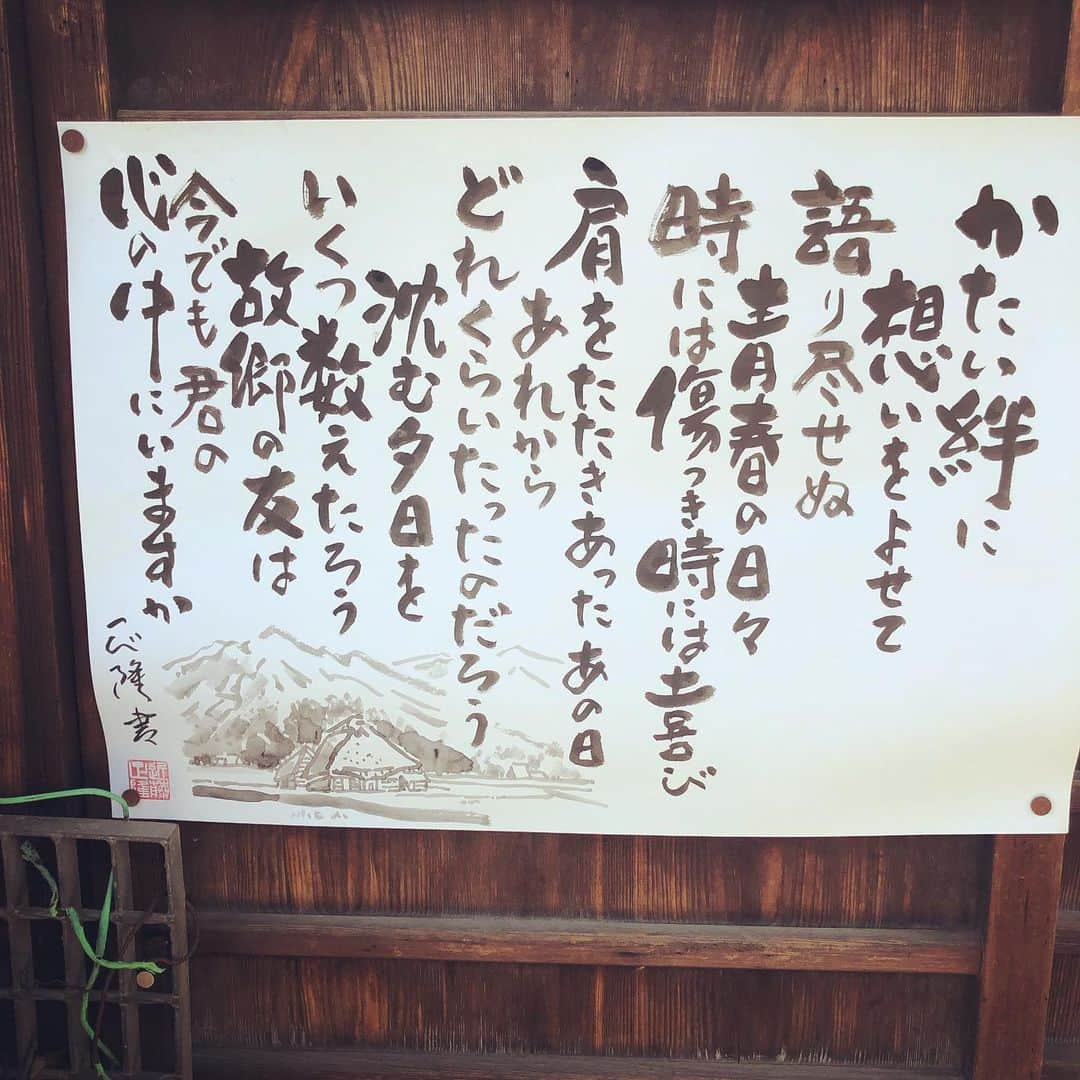 かたい絆に
想いをよせて
語り尽せぬ
青春の日々
時には傷つき時には喜び
肩をたたきあったあの日
あれから
どれくらいたったのだろう
沈む夕日を
いくつ数えたろう
故郷の友は
今でも君の
心の中にいますか